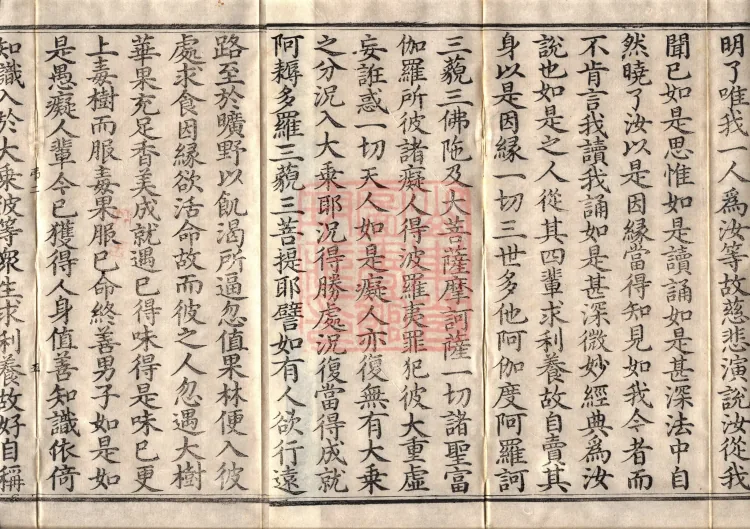 明了唯我一人為汝等故慈悲演說汝從我
聞已如是思惟如是讀誦如是甚深法中自
然曉了汝以是因緣當得知見如我今者而
不肯言我讀我誦如是甚深微妙經典為汝
說也如是之人從其四輩求利養故自賣其
身以是因緣一切三世多他阿伽度阿羅訶
三藐三佛陁及大菩薩摩訶薩一切諸聖富
伽羅所彼諸癡人得波羅夷罪犯彼大重虛
妄誑惑一切天人如是癡人亦復無有大乘
之分況入大乘耶況得勝處況復當得成就
阿耨多羅三藐三菩提耶譬如有人欲行遠
路至於曠野以飢渴所逼忽值果林便入彼
處求食因緣欲活命故而彼之人忽遇大樹
華果充足香美成就遇已得味得是味已更
上毒樹而服毒果服已命終善男子如是如
是愚癡人輩今已獲得人身值善知識依倚
知識入於大乘彼等眾生求利養故好自稱